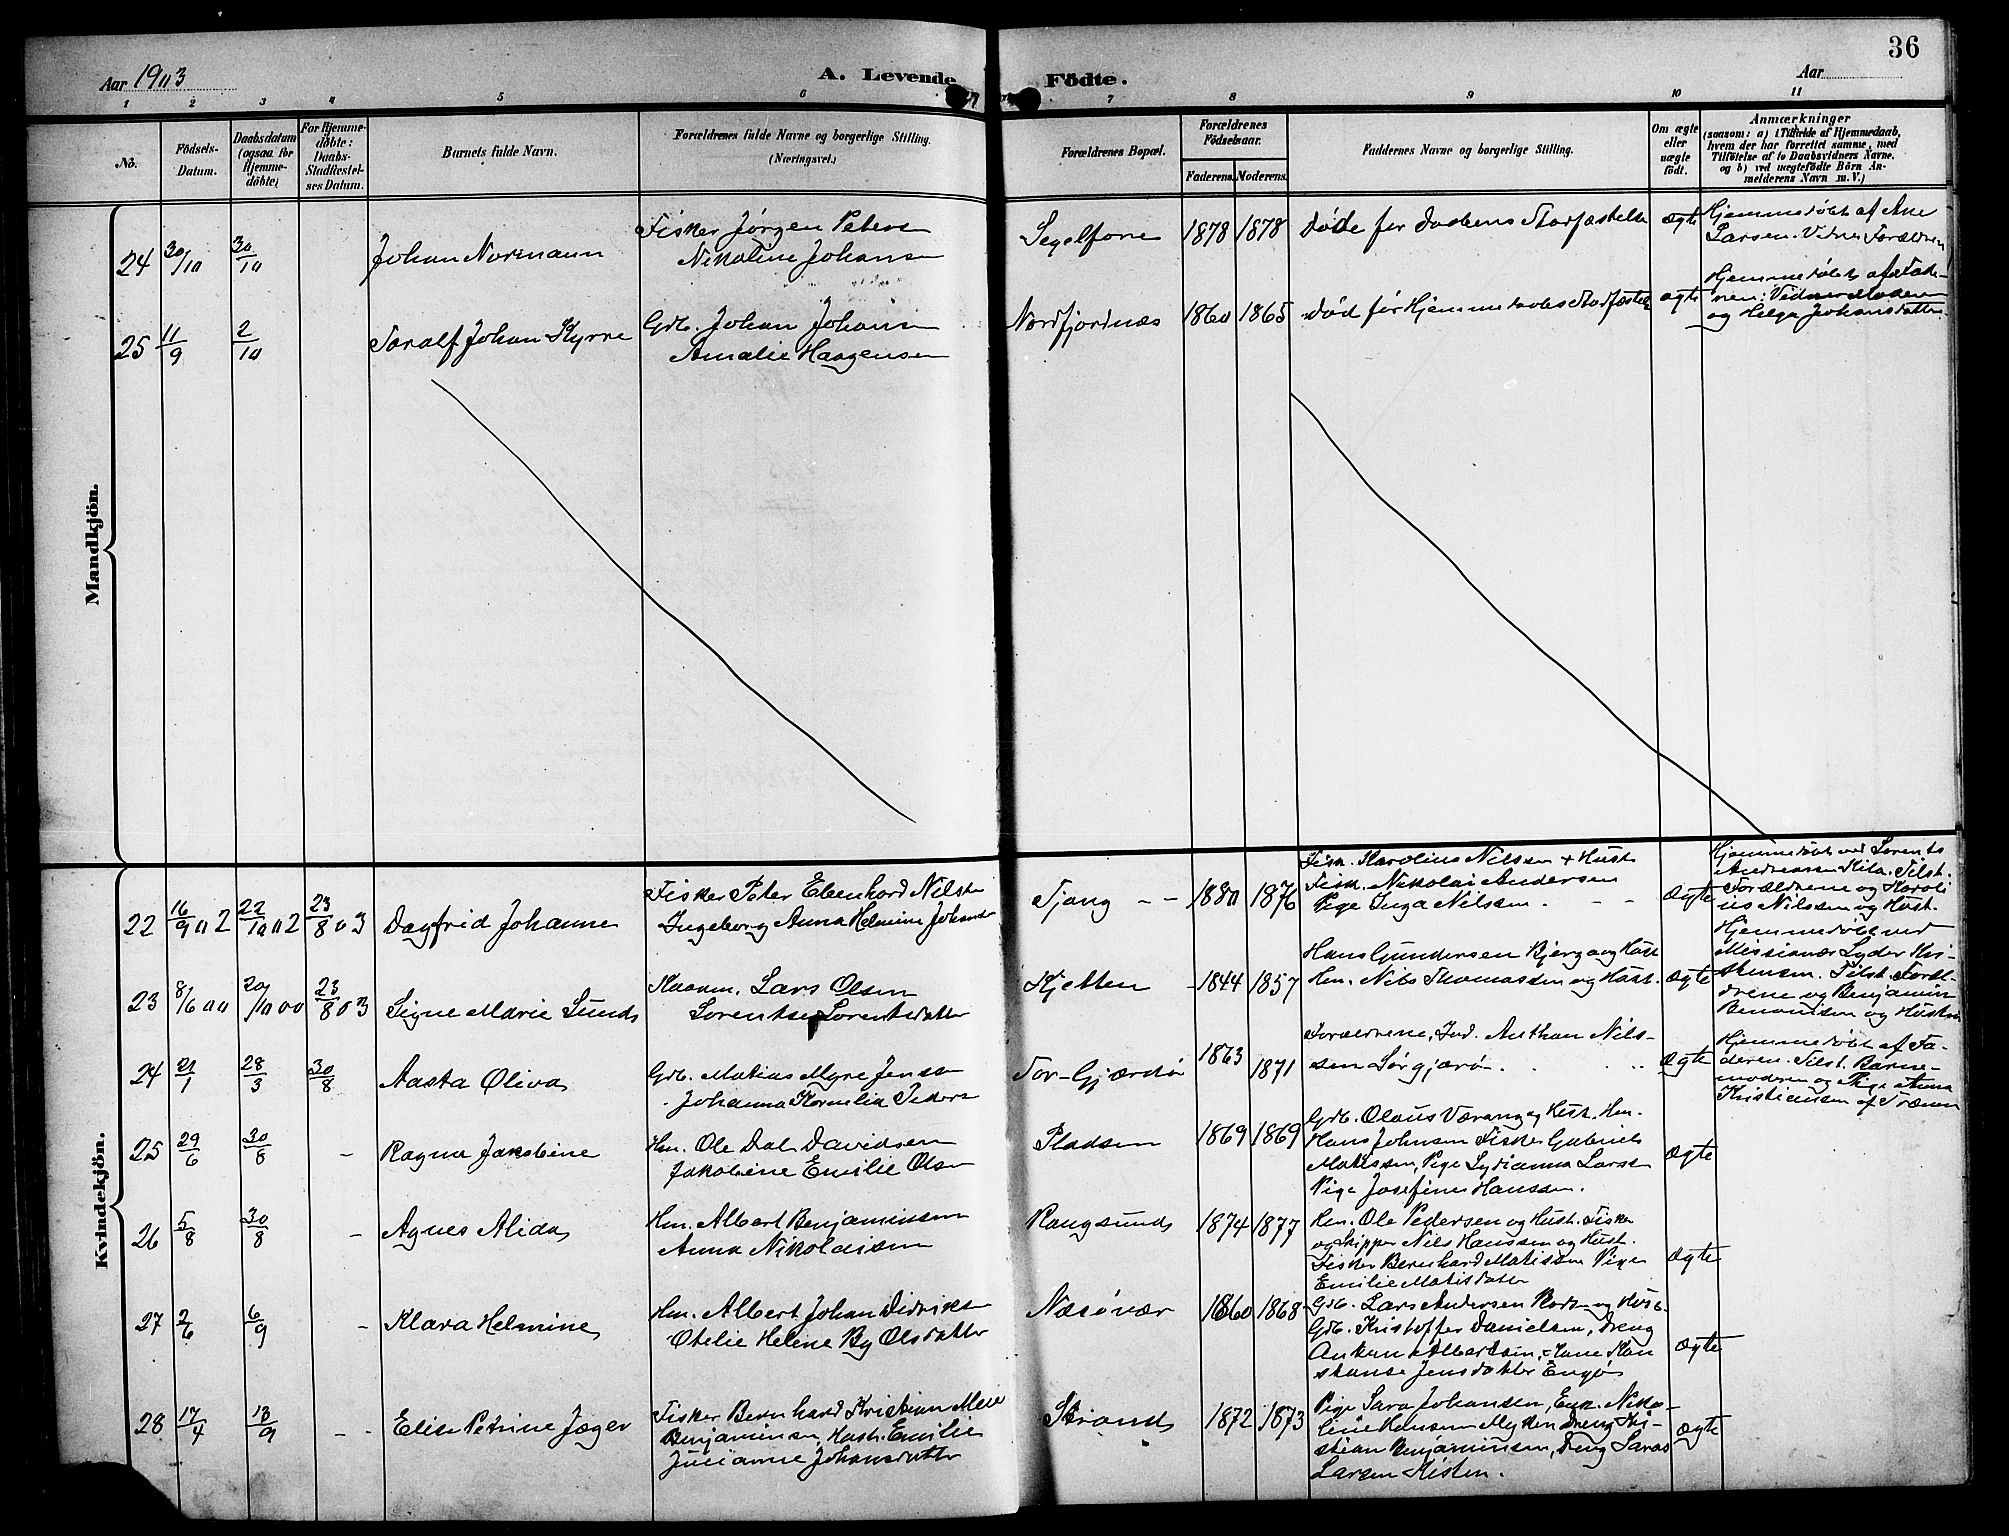 36
Aar 1903
A. Levende Fødte.
Aar
1 2 3 4 5 6 7 8 9 10 11
No.
Födsels-
Datum.
Daabsdatum
(ogsaa for
Hjemme-
döbte)
For Hjemme-
döbte:
Daabs-
Stadfæstel-
ses Datum.
Barnets fulde Navn.
Forældrenes fulde Navne og borgerlige Stilling.
(Næringsvei.)
Forældrenes Bopæl.
Forældrenes
Födselsaar.
Faderens. Moderens.
Faddernes Navne og borgerlige Stilling.
Om ægte
eller
uægte
födt.
Anmærkninger
(saasom: a) i Tilfælde af Hjemmedaab,
hvem der har forrettet samme, med
Tilföielse af to Daabsvidners Navne,
og b) ved uægtefödte Börn An-
melderens Navn m. V.)
Mandkjön.
24 30/10 30/10 Johan Normann
Fisker Jørgen Peters
Nikoline Johans
1878 1878 Døde før Daabens Stadfæstelse
ægte
Hjemmedøbt af Ane
Larsen. Vidner Forældrene
25 11/9 2/10 Toralf Johan Kyrre
Gdb. Johan Johans
Amalie Haagensen
Nordfjordnæs 1860 1865 Død før Hjemmedaabs Stadfæstelse
ægte
Hjemmedøbt af Fade-
ren. Vidner Moderen
og Helga Johansdatter
Kvindekjön.
22 16/9 02 22/10 02 23/8 03 Dagfrid Johanne
Fisker Peter Ebenhard Nilsen
Ingeborg Anna Helmine Johans
Tjong 1880 1876
Fisk. Karolius Nilssen + Hust
Fisk. Nikolai Andersen
Pige Inga Nilsen.
Ægte
Hjemmedøbt ved Lorents
Andreassen Tilst.
Forældrene og Karoli
us Nilssen og Hust.
23 8/6 00 20/10 00 23/8 03 Signe Marie Sund
Lars Olsen
Lorentse Lorentsdatter
Kjetten 1844 1857
Hans Gundersen Bjerga og Hust
Hm. Nils Thomassen og Hust.
Ægte
Hjemmedøbt ved
Missionær Lyder Kri-
stensen. Tilst. Foræl-
drene og Benjamin
Benonisen og Hustru
24 21/1 28/3 30/8 Aasta Oliva
Gdb. Matias Myre Jensen
Johanna Kornelia Peders
1863 1871
Forældrene, Ind. Anthon Nils-
sen Sørgjærø.
Ægte
Hjemmedøbt af Fa-
deren. Tilst. Barne-
moderen og Pige Anna
Kristiansen af Trænen
25 29/6 30/8 - Ragna Jakobine
Hm. Ole Dal Davidsen
Jakobine Emilie Olsen
Pladsen 1869 1869
Gdb. Olaus Værang og Hust. Hm.
Hans Johnsen Fisker Gabriel
Matissen, Pige Lydianna Larsen
Pige Josefine Hanssen.
Ægte
26 5/8 30/8 - Agnes Alida
Hm. Albert Benjaminsen
Anna Nikolaisen
Rangsund 1874 1877
Hm. Ole Pedersen og Hust. Fisker
og skipper Nils Hanssen og Hust.
Fisker Bernhard Matissen Pige
Emilie Matisdatter
Ægte
27 2/6 6/9 - Klara Helmine
Hm. Albert Johan Didriksen
Otelie Helene By Olsdatter
Næsøvær 1860 1868
Gdb. Lars Andersen og Hust.
Gdb. Kristoffer Danielsen, Dreng
Albertsen, Kone Kon
stanse Jensdatter Engø
Ægte
28 17/4 13/9 - - Elise Petrine Jæger
Fisker Bernhard Kristian Meier
Benjaminsen, Hust. Emilie
Julianne Johansdatter
Strand 1872 1873
Pige Sara Johansen, Enk. Niko-
line Hansen Myken, dreng Kri-
stian Benjaminsen, dreng Laras
Larsen Kisten.
Ægte